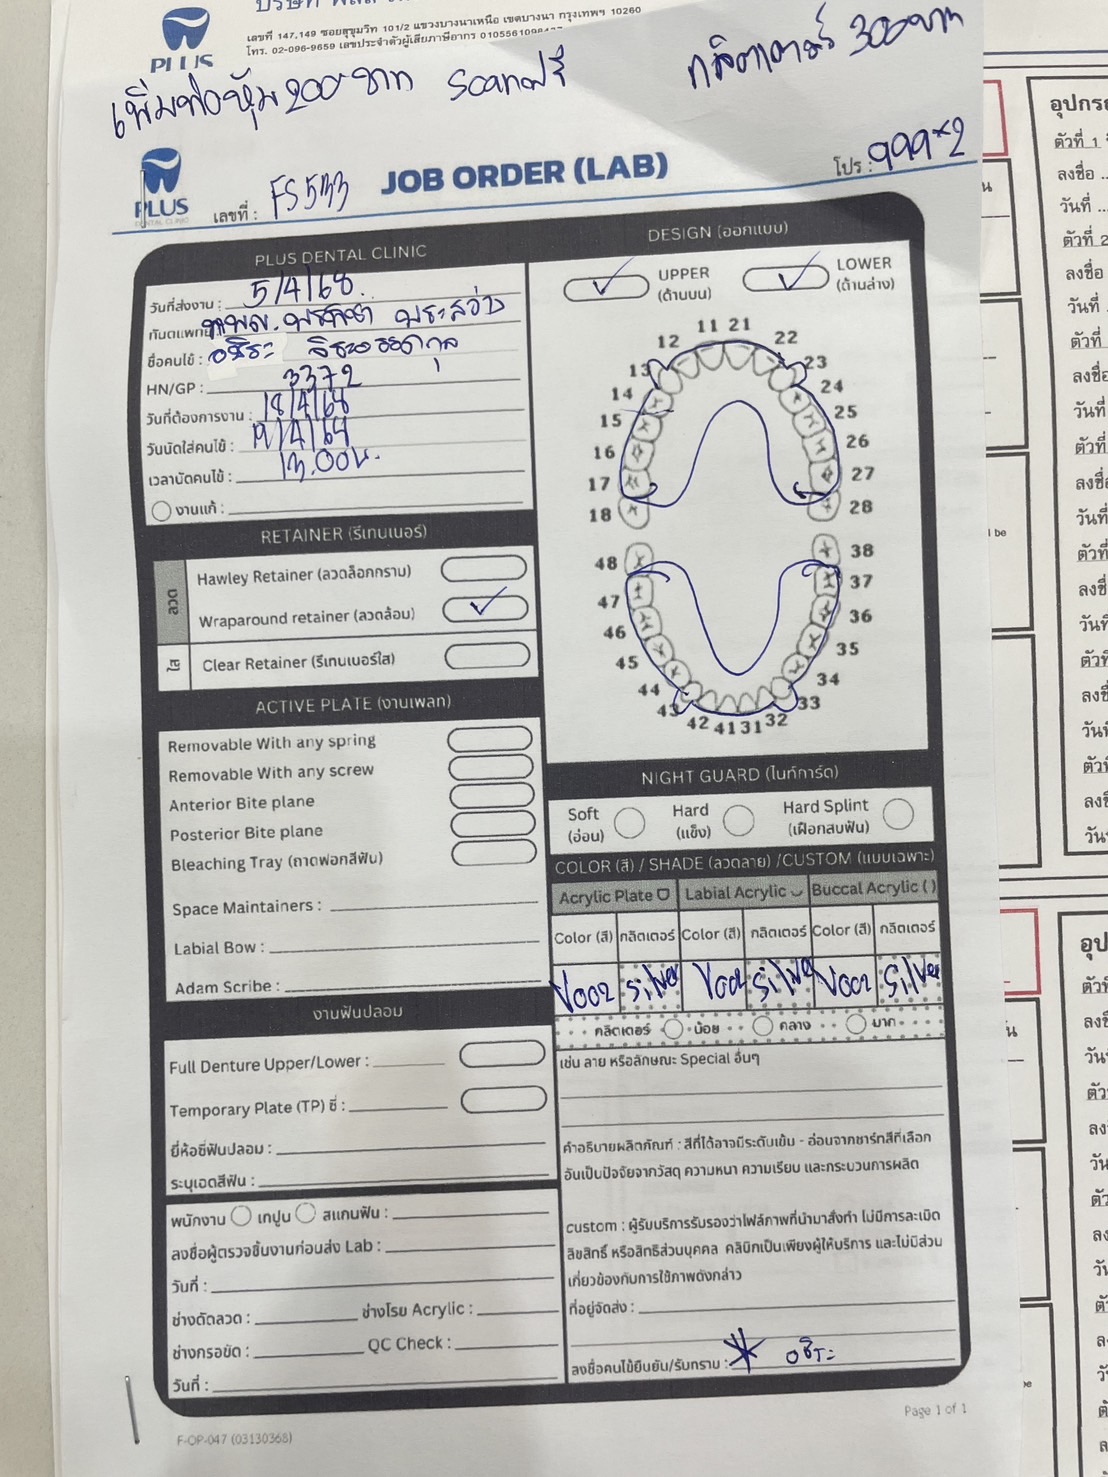 PLUS
เลขที่ 147,149 ซอยสุขุมวิท 101/2 แขวงบางนาเหนือ เขตบางนา กรุงเทพฯ 10260
โทร. 02-096-9659 เลขประจำตัวผู้เสียภาษีอากร
เพิ่มท่อหุ้ม 200 บาท scanฟรี กลิตเตอร์ 300 บาท
PLUS
DENTAL CLINIC
เลขที่ : FS533
JOB ORDER (LAB)
โปร : 999×2
PLUS DENTAL CLINIC
วันที่ส่งงาน : 5/4/68
ทันตแพทย์
ชื่อคนไข้ : อชิระ
HN/GP : 3372
วันที่ต้องการงาน : 18/4/68
วันนัดใส่คนไข้ : 19/4/68
เวลานัดคนไข้ : 13.00น.
งานแก้ :
RETAINER (รีเทนเนอร์)
ลวด
Hawley Retainer (ลวดล็อกกราม)
Wraparound retainer (ลวดล้อม)
ใส
Clear Retainer (รีเทนเนอร์ใส)
ACTIVE PLATE (งานเพลท)
Removable With any spring
Removable With any screw
Anterior Bite plane
Posterior Bite plane
Bleaching Tray (ถาดฟอกสีฟัน)
Space Maintainers :
Labial Bow :
Adam Scribe :
งานฟันปลอม
Full Denture Upper/Lower :
Temporary Plate (TP) ซี่ :
ยี่ห้อซี่ฟันปลอม :
ระบุเฉดสีฟัน :
พนักงาน เทปูน สแกนฟัน :
ลงชื่อผู้ตรวจชิ้นงานก่อนส่ง Lab :
วันที่ :
ช่างดัดลวด : ช่างโรย Acrylic :
ช่างกรอขัด : QC Check :
วันที่ :
F-OP-047 (03130368)
DESIGN (ออกแบบ)
UPPER
(ด้านบน)
LOWER
(ด้านล่าง)
11 21
12 22
13 23
14 24
15 25
16 26
17 27
18 28
48 38
47 37
46 36
45 35
44 34
43 33
42 41 31 32
NIGHT GUARD (ไนท์การ์ด)
Soft
(อ่อน)
Hard
(แข็ง)
Hard Splint
(เฝือกสบฟัน)
COLOR (สี) / SHADE (ลวดลาย) /CUSTOM (แบบเฉพาะ)
Acrylic Plate Labial Acrylic Buccal Acrylic ( )
Color (สี) กลิตเตอร์ Color (สี) กลิตเตอร์ Color (สี) กลิตเตอร์
V002 Silver V002 Silver V002 Silver
กลิตเตอร์ น้อย กลาง มาก
เช่น ลาย หรือลักษณะ Special อื่นๆ
คำอธิบายผลิตภัณฑ์ : สีที่ได้อาจมีระดับเข้ม - อ่อนจากชาร์ทสีที่เลือก
อันเป็นปัจจัยจากวัสดุ ความหนา ความเรียบ และกระบวนการผลิต
custom : ผู้รับบริการรับรองว่าไฟล์ภาพที่นำมาสั่งทำ ไม่มีการละเมิด
ลิขสิทธิ์ หรือสิทธิส่วนบุคคล คลินิกเป็นเพียงผู้ให้บริการ และไม่มีส่วน
เกี่ยวข้องกับการใช้ภาพดังกล่าว
ที่อยู่จัดส่ง :
ลงชื่อคนไข้ยืนยัน/รับทราบ : * อชิระ
Page 1 of 1
ตัวที่ 1
ลงชื่อ
วันที่
ตัวที่ 2
ลงชื่อ
วันที่
ตัวที่
ลงชื่อ